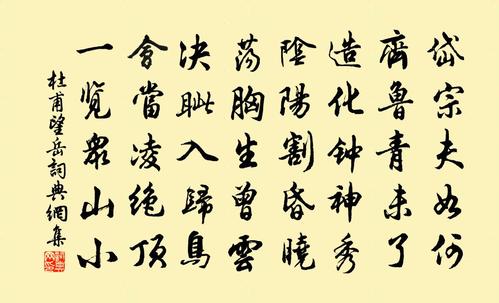 岱宗夫如何
齊魯青未了
造化钟神秀
陰陽割昏曉
蕩胸生曾雲
决眦入歸鳥
會當凌绝頂
一览眾山小
杜甫望岳詞典網集